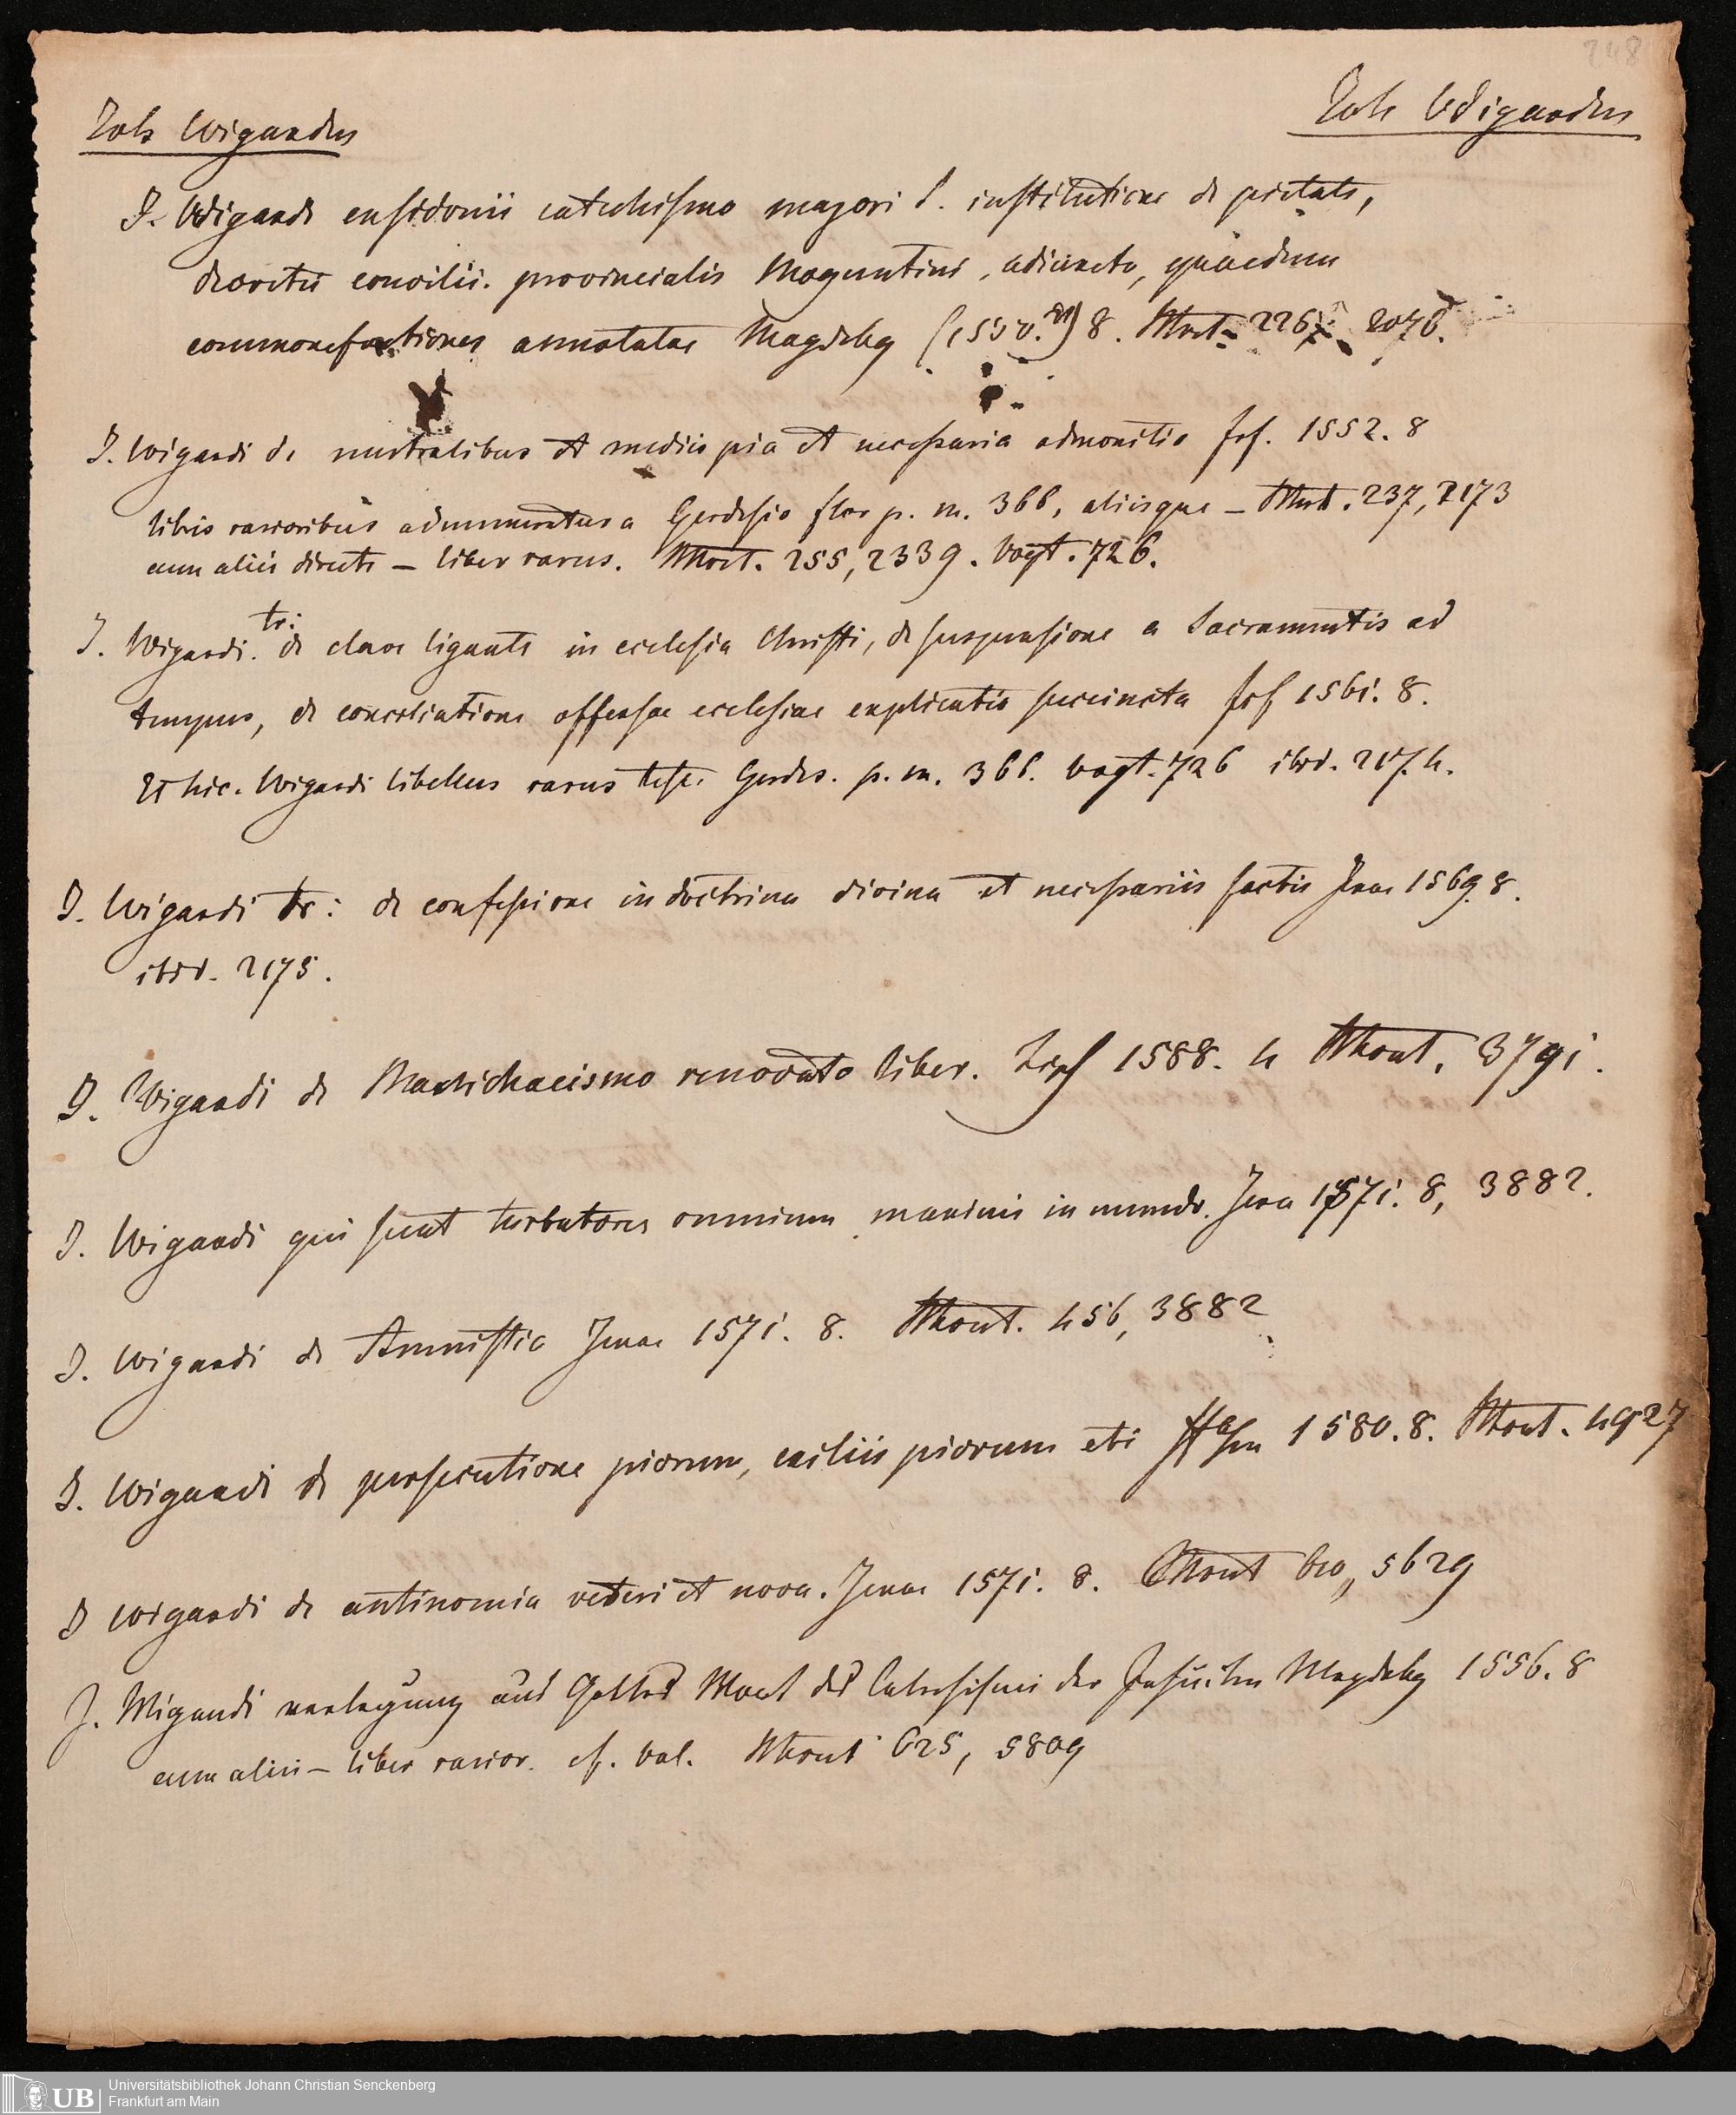 248
Joh Wigandus
Joh Wigandus
J. Wigandi ensidonii catechismo majori s. institutione de pietate,
decretis concilii provincialis Moguntini, adiuncto, quaedam
commonefactiones annotatae Magdebg (1550.) 8. 226
J. Wigandi de neutralibus et mediis pia et necessaria admonitio frf. 1552. 8
libris rarioribus adnumeratur a Gerdesio flor p. m. 366, aliisque – 237, 2173
cum aliis directe – liber rarus. 255, 2339. Vogt. 726.
J. Wigandi tr: de clave ligante in ecclesia Christi, de suspensione a Sacramentis ad
tempus, de conciliatione offensae ecclesiae explicatio succincta frf 1561. 8.
Et hic. Wigandi libellus rarus teste Gerdes. p. m. 366. Vogt. 726 ibid. 2174.
J. Wigandi tr: de confessione in doctrina divina et necessariis factis Jenae 1569. 8.
ibid. 2175.
J. Wigandi de Manichaeismo renovato liber. Lips 1588. 4 3791.
J. Wigandi qui sunt turbatores omnium maximi in mundo. Jena 1571. 8, 3882.
J. Wigandi de Amnistia Jenae 1571. 8. 456, 3882
J. Wigandi de persecutione piorum, exiliis piorum etc 1580. 8. 4927
J Wigandi de antinomia veteri et nova. Jenae 1571. 8. 5629
J. Wigandi verlegung aus Gottes Wort des Catechismi der Jesuiten Magdebg 1556. 8
cum aliis – liber rarior. cf. 625, 5809
UB
Universitätsbibliothek Johann Christian Senckenberg
Frankfurt am Main